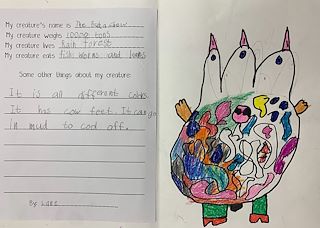 My creature's name is The
My creature weighs 10000 tons
My creature lives Rain forest
My creature eats fish worms and
Some other things about my creature:
It is all different colors.
It has cow feet. It can go
in mud to cool off.
By: